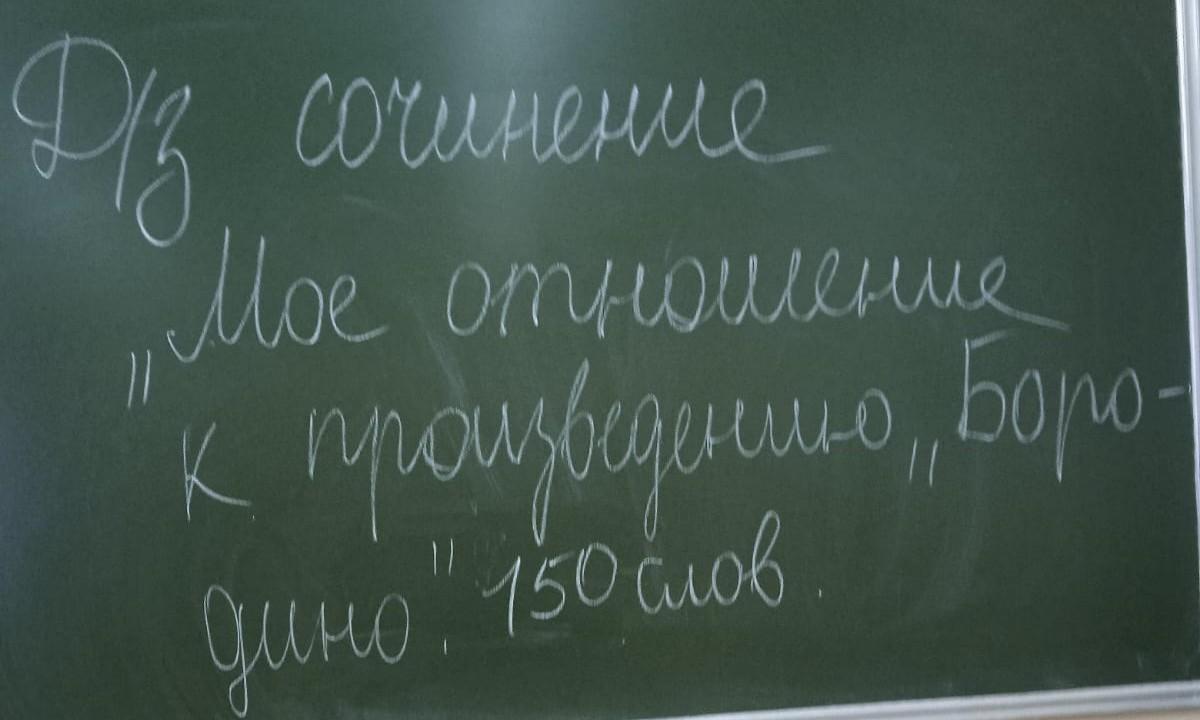 Д/з сочинение
„Мое отношение
к произведению „Боро-
дино". 150 слов.